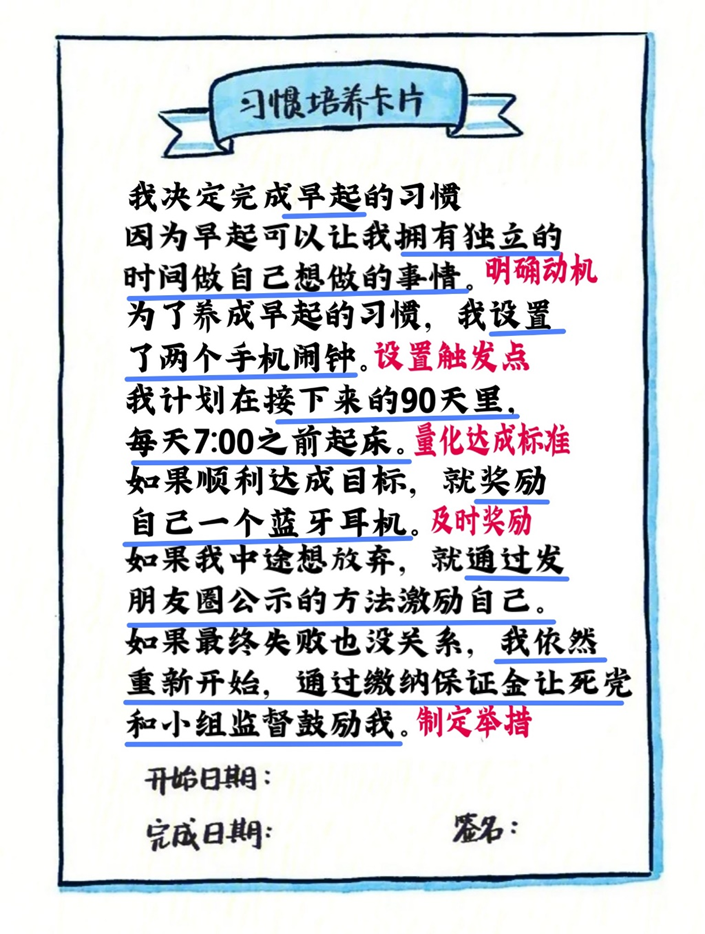 习惯培养卡片
我决定完成早起的习惯
因为早起可以让我拥有独立的
时间做自己想做的事情。明确动机
为了养成早起的习惯，我设置
了两个手机闹钟。设置触发点
我计划在接下来的90天里，
每天7:00之前起床。量化达成标准
如果顺利达成目标，就奖励
自己一个蓝牙耳机。及时奖励
如果我中途想放弃，就通过发
朋友圈公示的方法激励自己。
如果最终失败也没关系，我依然
重新开始，通过缴纳保证金让死党
和小组监督鼓励我。制定举措
开始日期：
完成日期：
签名：